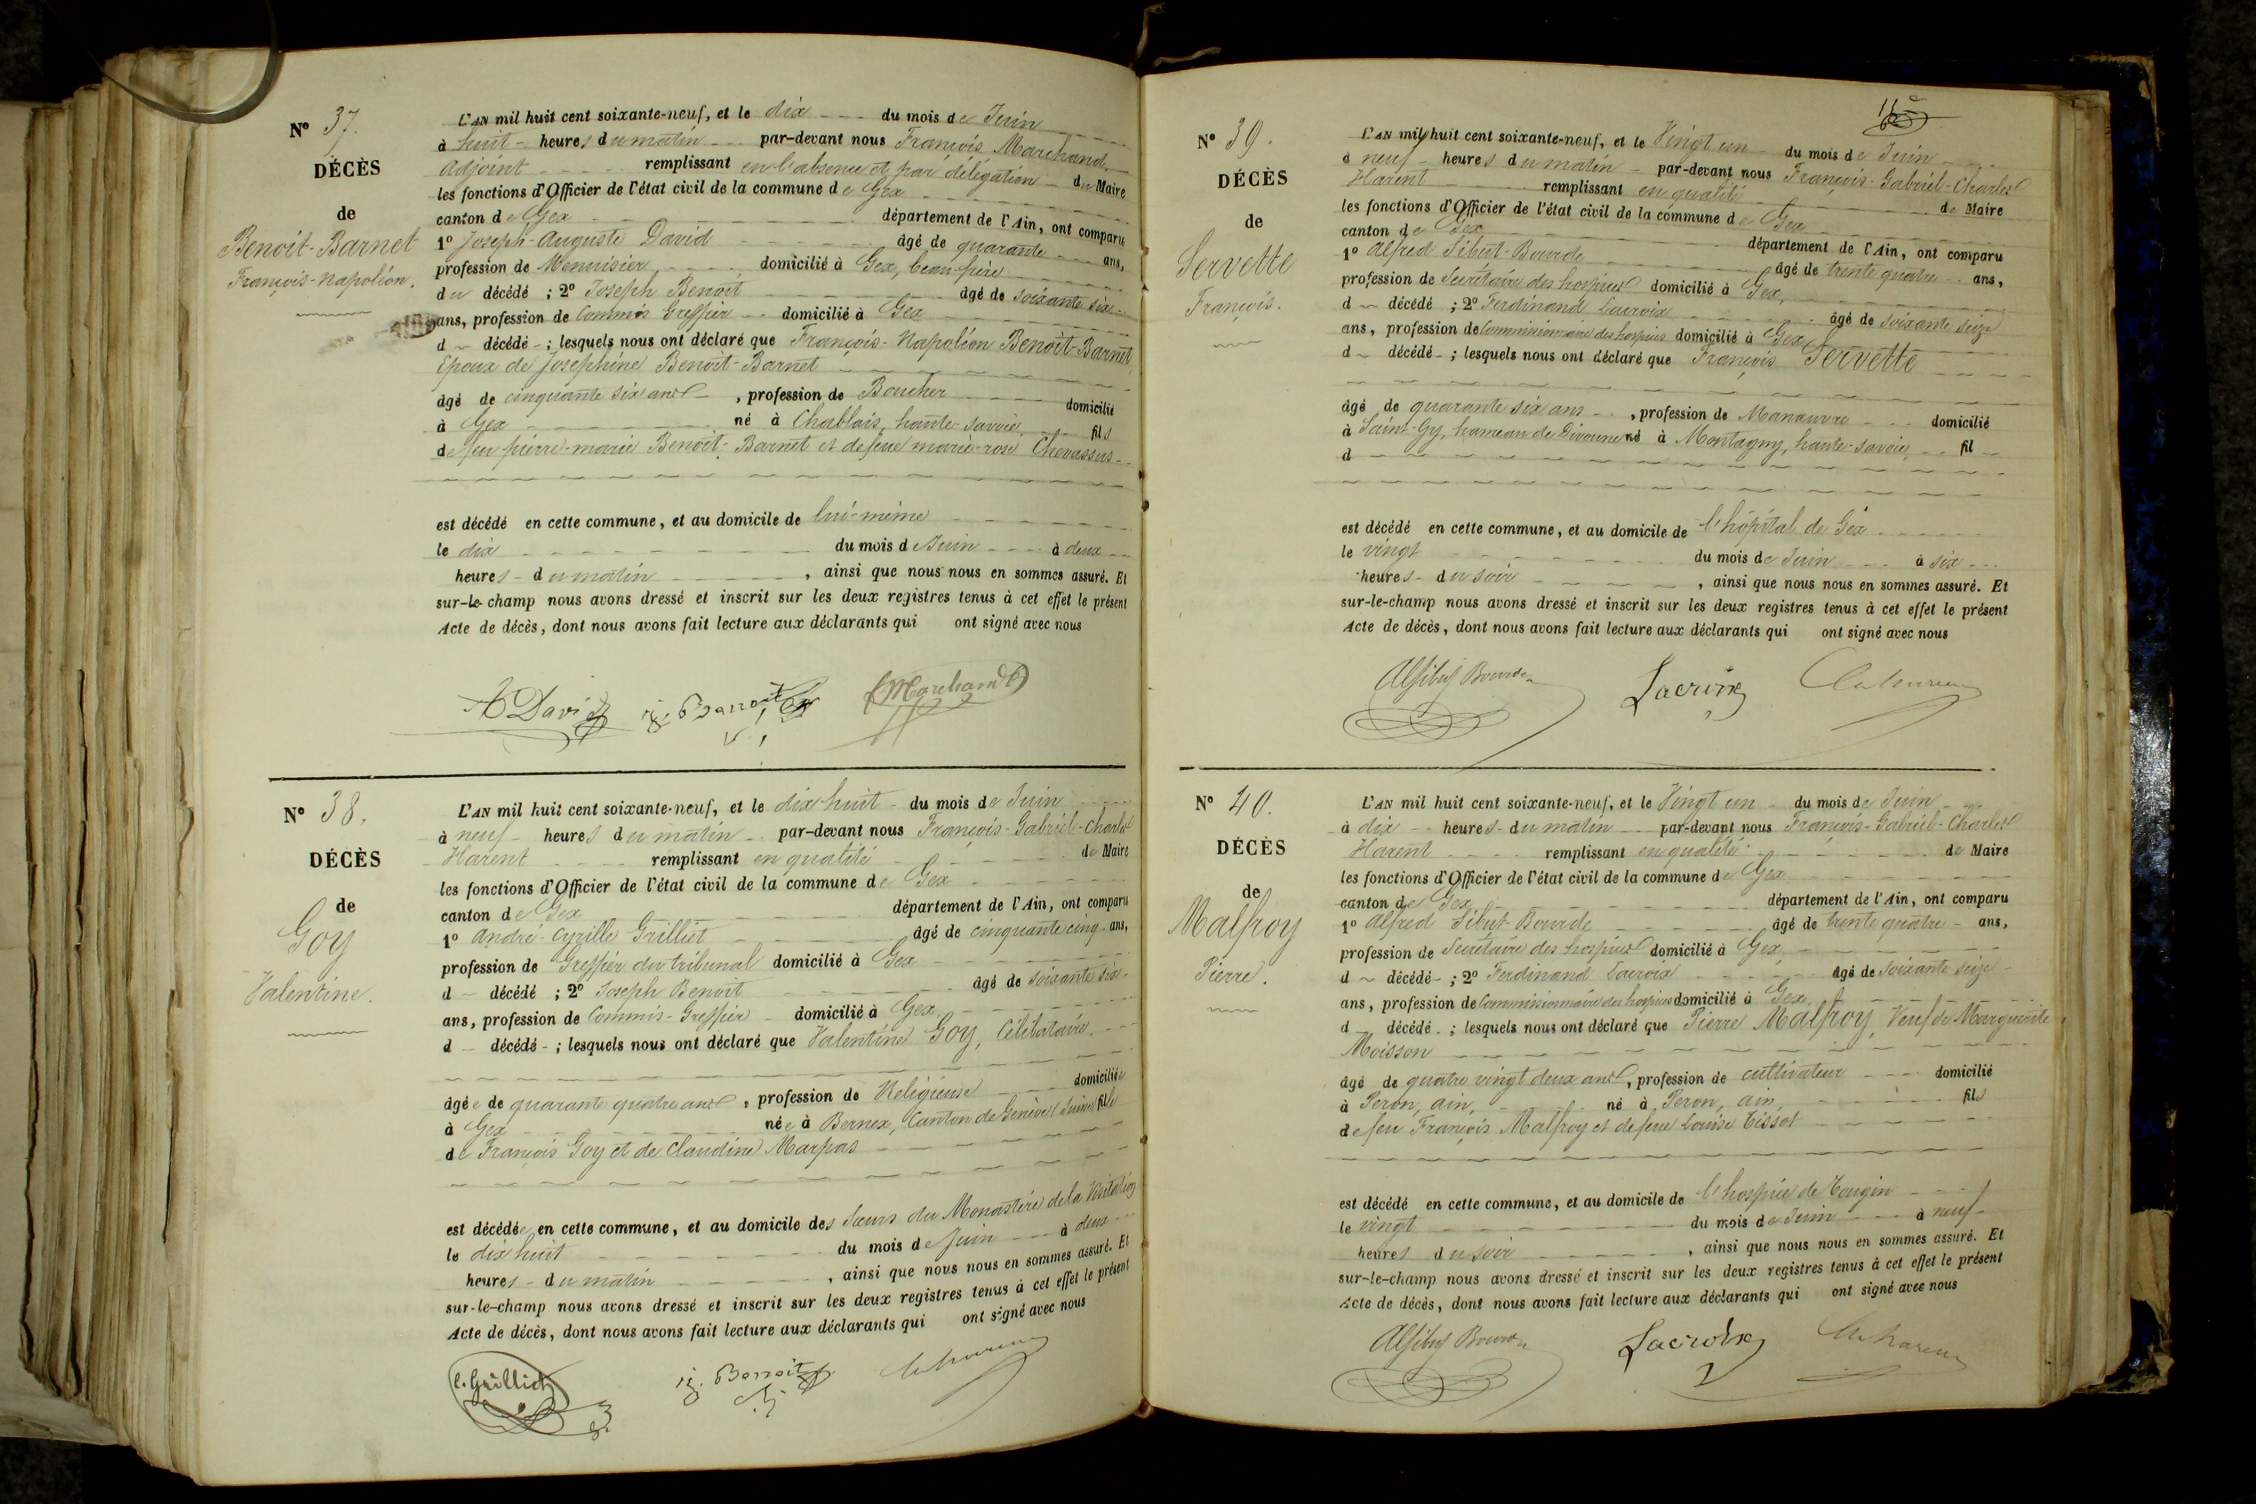 N° 37.
DÉCÈS
de
Benoît-Barnet
François-Napoléon.
L'AN mil huit cent soixante-neuf, et le dix du mois de Juin
à huit heures du matin par-devant nous François Marchand,
Adjoint remplissant en l'absence et par délégation du Maire
les fonctions d'Officier de l'état civil de la commune de Gex
canton de Gex département de l'Ain, ont comparu
1° Joseph-Auguste David âgé de quarante ans,
profession de Menuisier domicilié à Gex, beau-frère
du décédé ; 2° Joseph Benoît âgé de soixante six
ans, profession de Commis Greffier domicilié à Gex
d décédé ; lesquels nous ont déclaré que François-Napoléon Benoît-Barnet
Epoux de Joséphine Benoît-Barnet
âgé de cinquante six ans, profession de Boucher domicilié
à Gex né à Chablais, haute-savoie, fils
de feu pierre-marie Benoît-Barnet et de feue marie-rose Chevassus
est décédé en cette commune, et au domicile de lui-même
le dix du mois de Juin à deux
heures du matin, ainsi que nous nous en sommes assuré. Et
sur-le-champ nous avons dressé et inscrit sur les deux registres tenus à cet effet le présent
Acte de décès, dont nous avons fait lecture aux déclarants qui ont signé avec nous
A David j. Benoit Marchand
N° 38.
DÉCÈS
de
Goy
Valentine.
L'AN mil huit cent soixante-neuf, et le dix huit du mois de Juin
à neuf heures du matin par-devant nous François-Gabriel-Charles
Harent remplissant en qualité de Maire
les fonctions d'Officier de l'état civil de la commune de Gex
canton de Gex département de l'Ain, ont comparu
1° André-Cyrille Grilliet âgé de cinquante cinq ans,
profession de Greffier du tribunal domicilié à Gex
d décédé ; 2° Joseph Benoît âgé de soixante six
ans, profession de Commis-Greffier domicilié à Gex,
d décédé ; lesquels nous ont déclaré que Valentine Goy, Célibataire.
âgée de quarante quatre ans, profession de Religieuse domiciliée
à Gex née à Bernex, Canton de Genève (Suisse) fille
de François Goy et de Claudine Marpas
est décédée en cette commune, et au domicile des Sœurs du Monastère de la Visitation
le dix huit du mois de Juin à deux
heures du matin, ainsi que nous nous en sommes assuré. Et
sur-le-champ nous avons dressé et inscrit sur les deux registres tenus à cet effet le présent
Acte de décès, dont nous avons fait lecture aux déclarants qui ont signé avec nous
j. Benoit
N° 39.
DÉCÈS
de
Servette
François.
L'AN mil huit cent soixante-neuf, et le Vingt un du mois de Juin
à neuf heures du matin par-devant nous François-Gabriel-Charles
Harent remplissant en qualité de Maire
les fonctions d'Officier de l'état civil de la commune de Gex
canton de Gex département de l'Ain, ont comparu
1° Alfred Sibut-Bourde âgé de trente quatre ans,
profession de Secrétaire des hospices domicilié à Gex,
d décédé ; 2° Ferdinand Lacroix âgé de soixante seize
ans, profession de Commissionnaire des hospices domicilié à Gex,
d décédé ; lesquels nous ont déclaré que François Servette
âgé de quarante six ans, profession de Manœuvre domicilié
à Saint-Gy, hameau de Divonne né à Montagny, haute-savoie, fil
d
est décédé en cette commune, et au domicile de l'hôpital de Gex
le vingt du mois de Juin à six
heures du soir, ainsi que nous nous en sommes assuré. Et
sur-le-champ nous avons dressé et inscrit sur les deux registres tenus à cet effet le présent
Acte de décès, dont nous avons fait lecture aux déclarants qui ont signé avec nous
Lacroix
N° 40.
DÉCÈS
de
Malfroy
Pierre.
L'AN mil huit cent soixante-neuf, et le Vingt un du mois de Juin
à dix heures du matin par-devant nous François-Gabriel-Charles
Harent remplissant en qualité de Maire
les fonctions d'Officier de l'état civil de la commune de Gex
canton de Gex département de l'Ain, ont comparu
1° Alfred Sibut-Bourde âgé de trente quatre ans,
profession de Secrétaire des hospices domicilié à Gex,
d décédé ; 2° Ferdinand Lacroix âgé de soixante seize
ans, profession de Commissionnaire des hospices domicilié à Gex,
d décédé ; lesquels nous ont déclaré que Pierre Malfroy, Veuf de Marguerite
Moisson
âgé de quatre vingt deux ans, profession de cultivateur domicilié
à Peron, ain, né à Peron, ain, fils
de feu François Malfroy et de feue Louise Tissot
est décédé en cette commune, et au domicile de l'hospice de Tougin
le vingt du mois de Juin à neuf
heures du soir, ainsi que nous nous en sommes assuré. Et
sur-le-champ nous avons dressé et inscrit sur les deux registres tenus à cet effet le présent
Acte de décès, dont nous avons fait lecture aux déclarants qui ont signé avec nous
Lacroix